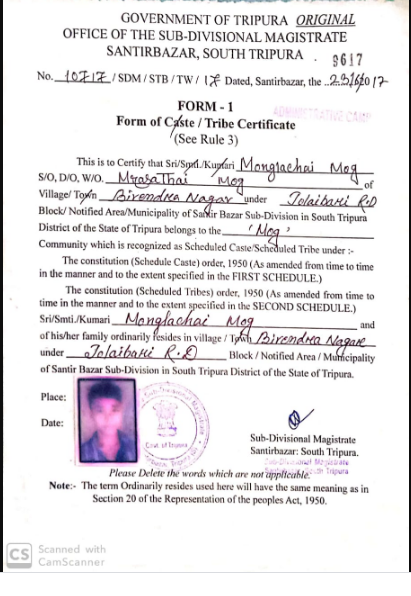 GOVERNMENT OF TRIPURA ORIGINAL
OFFICE OF THE SUB-DIVISIONAL MAGISTRATE
SANTIRBAZAR, SOUTH TRIPURA . 9617
No. 10717 / SDM / STB / TW / 17 Dated, Santirbazar, the ..23/6/2017
FORM - 1
ADMINISTRATIVE CAMP
Form of Caste / Tribe Certificate
(See Rule 3)
This is to Certify that Sri/Smti./Kumari Monglachai Mog
S/O, D/O, W/O. Mrasathai Mog of
Village/ Town Birendra Nagar under Jolaibari R.D
Block/ Notified Area/Municipality of Santir Bazar Sub-Division in South Tripura
District of the State of Tripura belongs to the 'Mog'
Community which is recognized as Scheduled Caste/Scheduled Tribe under :-
The constitution (Schedule Caste) order, 1950 (As amended from time to time
in the manner and to the extent specified in the FIRST SCHEDULE.)
The constitution (Scheduled Tribes) order, 1950 (As amended from time to
time in the manner and to the extent specified in the SECOND SCHEDULE.)
Sri/Smti./Kumari Monglachai Mog and
of his/her family ordinarily resides in village / Town Birendra Nagar
under Jolaibari R.D Block / Notified Area / Municipality
of Santir Bazar Sub-Division in South Tripura District of the State of Tripura.
Place:
Date:
Sub-Divisional Magistrate
Govt. of Tripura
Sub-Divisional Magistrate
Santirbazar: South Tripura.
Sub-Divisional Magistrate
Santirbazar, South Tripura
Please Delete the words which are not applicable.
Note:- The term Ordinarily resides used here will have the same meaning as in
Section 20 of the Representation of the peoples Act, 1950.
CS Scanned with
CamScanner